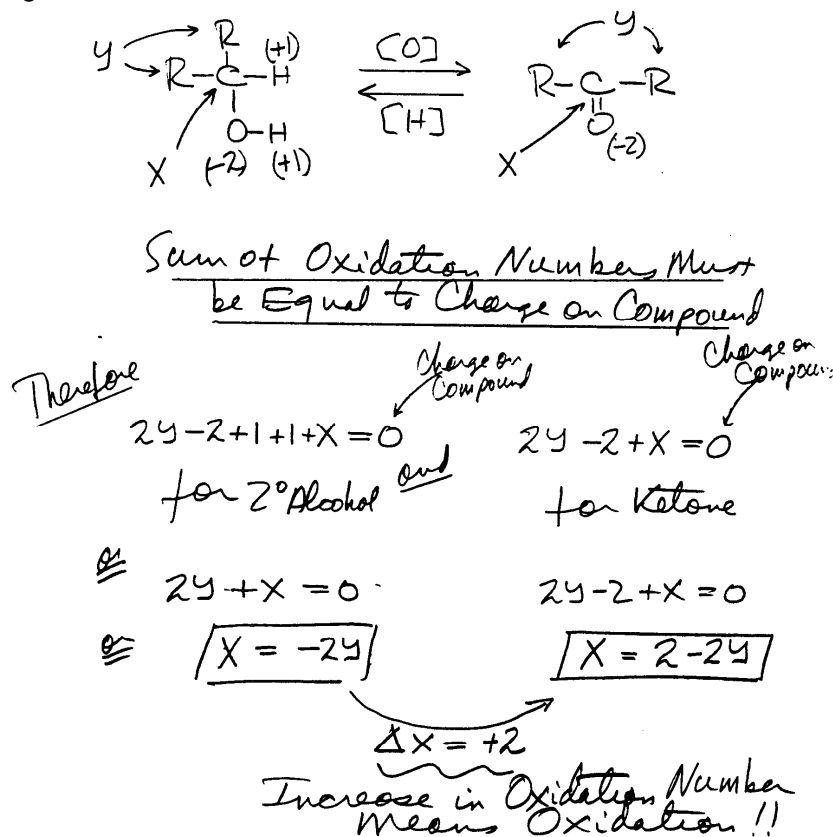 R
y
(+1)
R-C-H
O-H
X (-2) (+1)
[O]
[H]
y
R-C-R
O
(-2)
X
Sum of Oxidation Numbers Must
be Equal to Charge on Compound
Therefore
Charge on
Compound
Charge on
Compoun
2y-2+1+1+X=0
for 2° Alcohol
and
2y-2+X=0
for Ketone
or
2y+X=0
2y-2+X=0
or
X = -2y
X = 2-2y
ΔX = +2
Increase in Oxidation Number
Means Oxidation!!